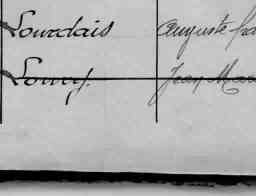 Lourdais Auguste fra
Loury. Jean Mar